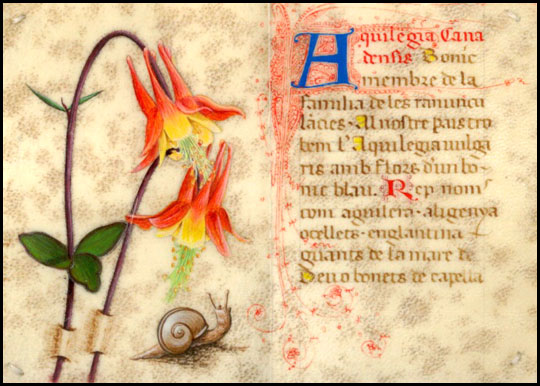 Aquilegia Cana
densis Bonic
membre de la
familia de les ranuncu
làcies · Al nostre país tro
bem l'Aquilegia vulga
ris amb flors d'un bo
nic blau. Rep noms
com aguilera · aligenya
ocellets · englantina
guants de la mare de
Deu o bonets de capellà